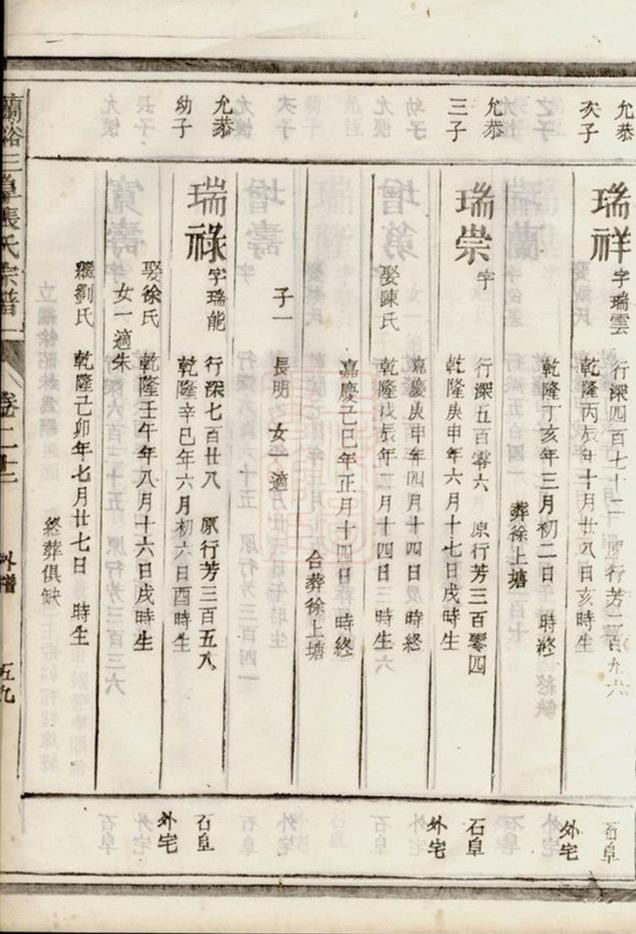 允恭
次子
瑞祥
字瑞雲
行深四百七十二
原行芳二百九六
乾隆丙辰年十月廿八日亥時生
乾隆丁亥年三月初二日　時終
葬徐上塘
石阜
外宅
允恭
三子
瑞崇
字
行深五百零六　原行芳三百零四
乾隆庚申年六月十七日戌時生
嘉慶庚申年四月十四日　時終
娶陳氏
乾隆戊辰年二月十四日　時生
嘉慶己巳年正月十四日　時終
合葬徐上塘
子一
長明　女一適
石阜
外宅
允恭
幼子
瑞祿
字瑞能
行深七百廿八　原行芳三百五八
乾隆辛巳年六月初六日酉時生
娶徐氏
乾隆壬午年八月十六日戌時生
女一適朱
繼劉氏
乾隆己卯年七月廿七日　時生
終葬俱缺
石阜
外宅
張氏宗譜
外譜
五九